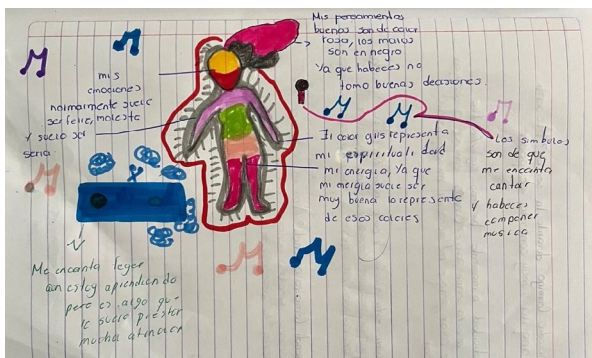 Mis pensamientos
buenos son de color
rosa, los malos
son en negro
Ya que habeces no
tomo buenas decisiones.
mis
emociones
normalmente suele
ser feliz, molesta
y suelo ser
seria
El color gris representa
mi espiritualidad
mi energía, Ya que
mi energia suele ser
muy buena la represente
de esos colores
Los simbolos
son de que
me encanta
cantar
y habeces
componer
musica
Me encanta tejer
aun estoy aprendiendo
pero es algo que
le suelo prestar
mucha atencion